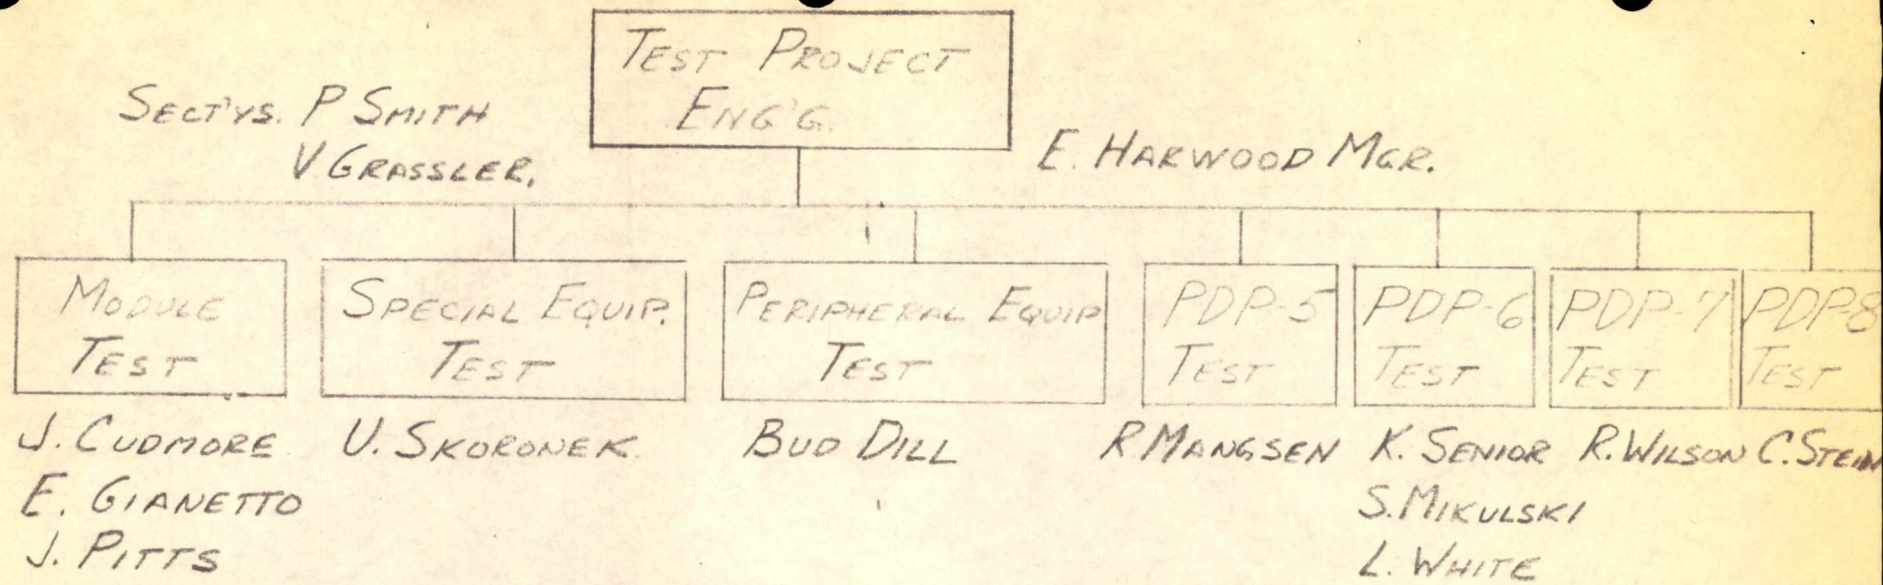 TEST PROJECT
ENG'G.
SECT'YS. P SMITH
V. GRASSLER,
E. HARWOOD MGR.
MODULE
TEST
SPECIAL EQUIP.
TEST
PERIPHERAL EQUIP
TEST
PDP-5
TEST
PDP-6
TEST
PDP-7
TEST
PDP-8
TEST
J. CUDMORE
E. GIANETTO
J. PITTS
U. SKORONEK
BUD DILL
R MANGSEN
K. SENIOR
S. MIKULSKI
L. WHITE
R. WILSON
C. STEIN